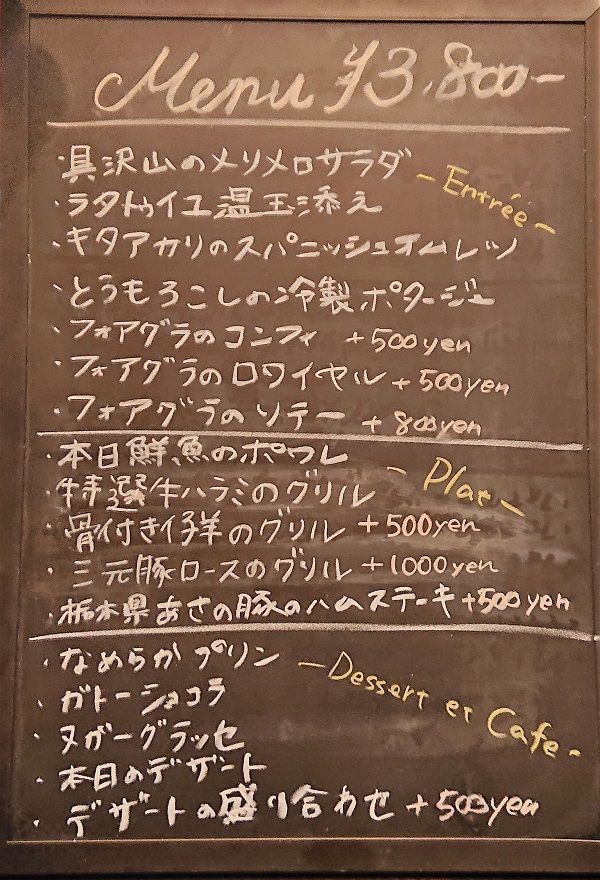 Menu ¥3,800-
・具沢山のメリメロサラダ
- Entrée -
・ラタトゥイユ温玉添え
・キタアカリのスパニッシュオムレツ
・とうもろこしの冷製ポタージュ
・フォアグラのコンフィ +500yen
・フォアグラのロワイヤル +500yen
・フォアグラのソテー +800yen
・本日鮮魚のポワレ
- Plat -
・特選牛ハラミのグリル
・骨付き仔羊のグリル +500yen
・三元豚ロースのグリル +1000yen
・栃木県あさの豚のハムステーキ +500yen
・なめらかプリン
- Dessert et Cafe -
・ガトーショコラ
・ヌガーグラッセ
・本日のデザート
・デザートの盛り合わせ +500yen